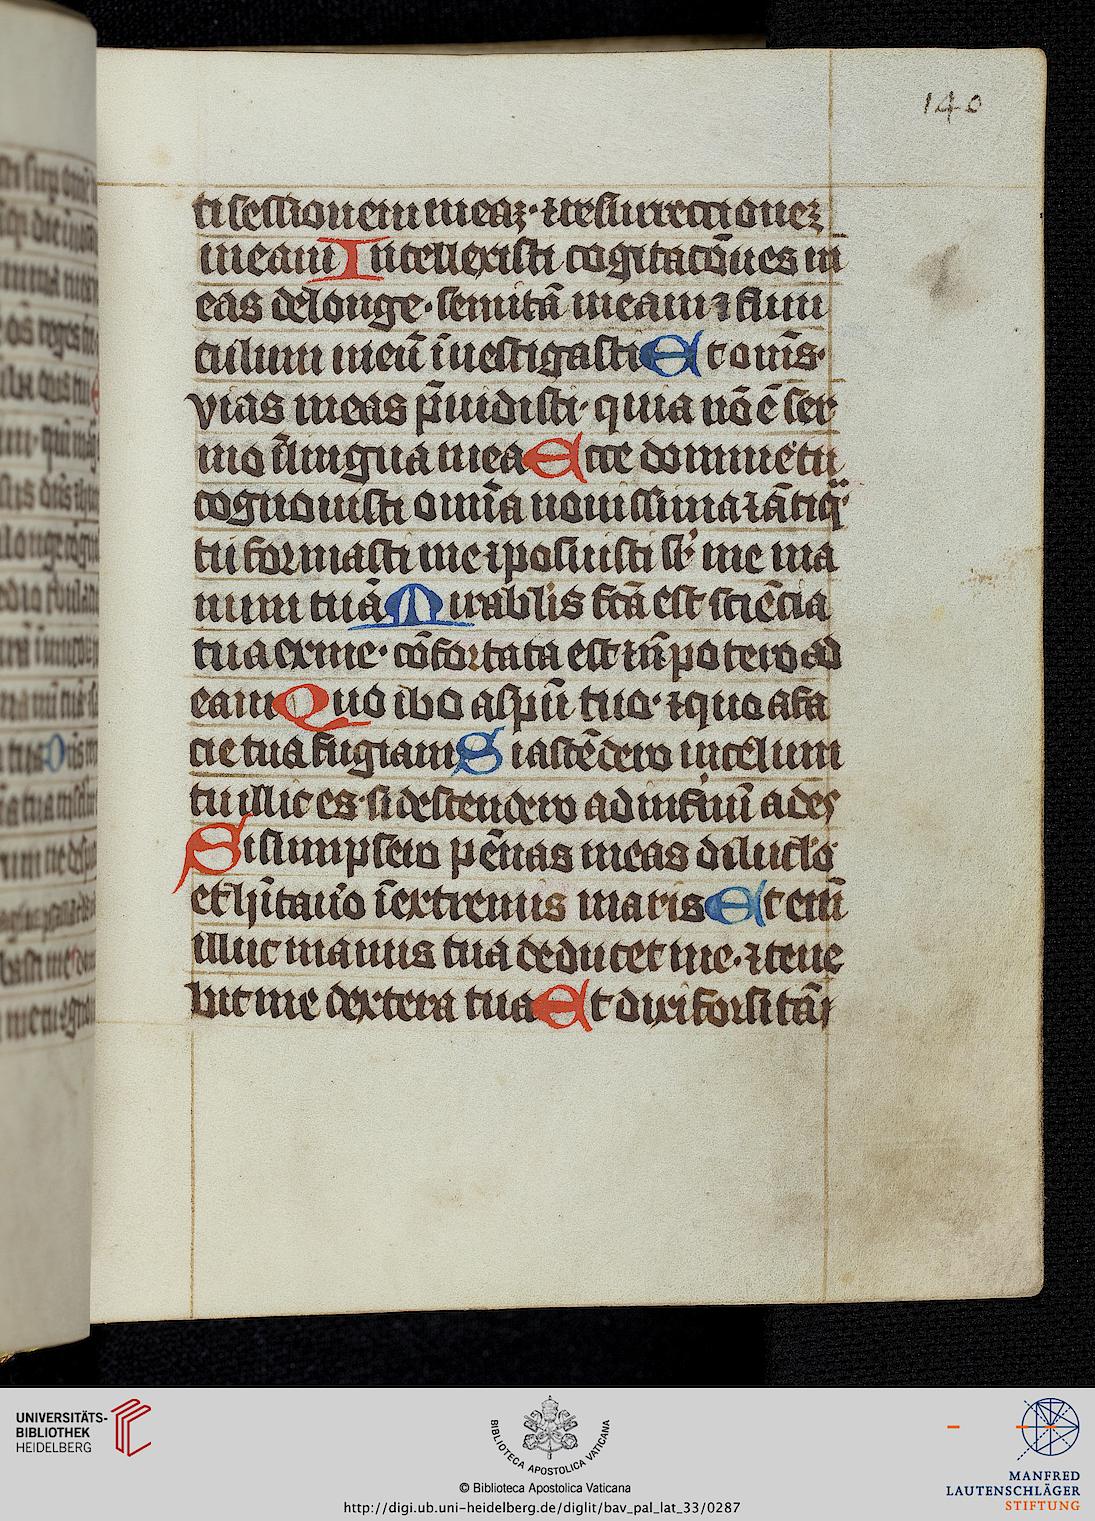 140
ti sessionem meaꝫ· ⁊ resurrectioneꝫ
meam Intellexisti cogitacōnes m
eas delonge· semitā meam ⁊ funi
culum meū īuestigasti Et om̄s·
vias meas p̄uidisti· quia nō ē ser
mo ī lingua mea Ecce domine tu
cognouisti om̄ia nouissima ⁊ ātiq̄
tu formasti me ⁊ posuisti sr̄ me ma
num tuā Mirabilis fc̄a est sciēcia
tua ex me· cōfortata est ⁊ n̄ potero ad
eam Quo ibo a spū tuo· ⁊ quo a fa
cie tua fugiam Si ascēdero in celum
tu illic es· si descendero ad infnū ades
Si sumpsero pēnas meas diluclo
et hītau̓o ī extremis maris Et eni̅
illuc manus tua deducet me· ⁊ tene
bit me dextera tua Et dixi forsitā
UNIVERSITÄTS-
BIBLIOTHEK
HEIDELBERG
BIBLIOTECA APOSTOLICA VATICANA
© Biblioteca Apostolica Vaticana
http://digi.ub.uni-heidelberg.de/diglit/bav_pal_lat_33/0287
MANFRED
LAUTENSCHLÄGER
STIFTUNG